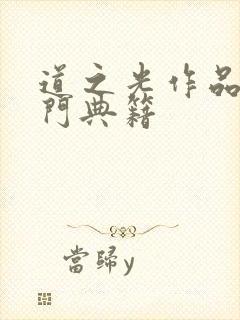 道之光作品
門典籍
當歸y